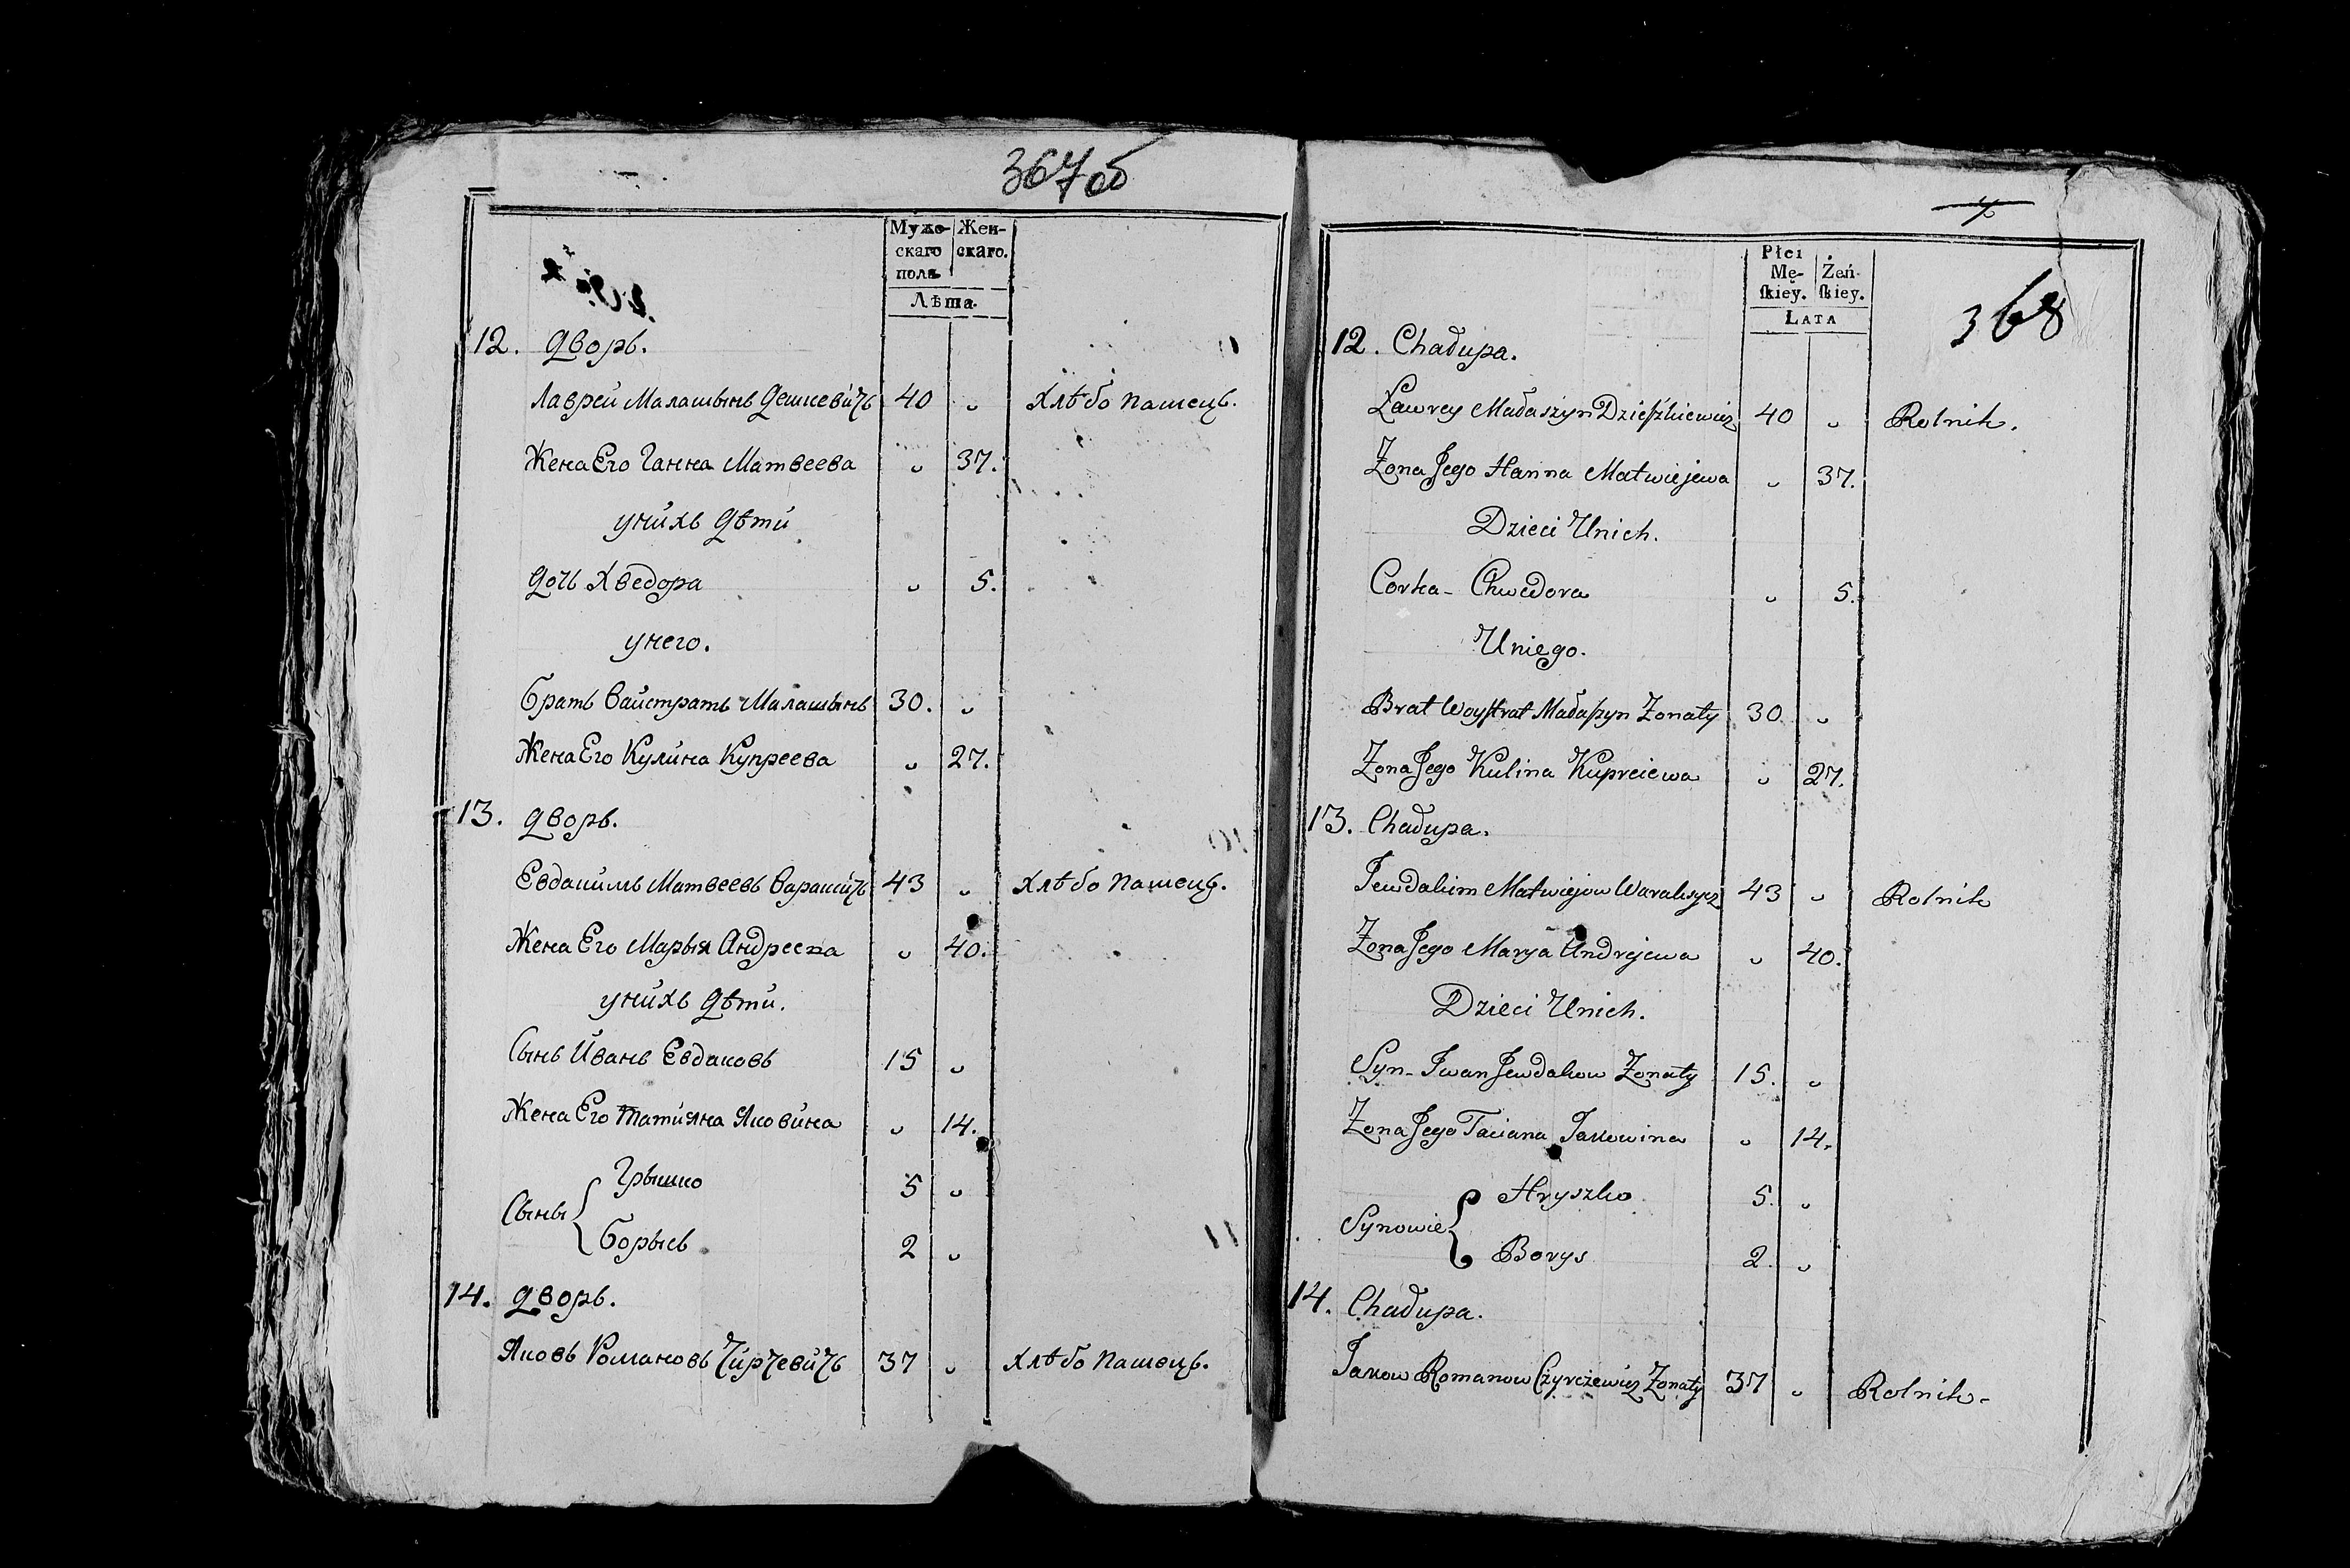 367об
Мужескаго пола
Женскаго.
Лѣта.
12. Дворъ.
Лаврей Малашынъ Дешкевичъ 40 „ Хлѣбопашецъ.
Жена Его Ганна Матвеева „ 37.
унихъ Дѣти
Дочь Хведора „ 5.
унего.
Братъ Вайстратъ Малашынъ 30. „
Жена Его Кулина Купреева „ 27.
13. Дворъ.
Евдакимъ Матвеевъ Варакичъ 43 „ Хлѣбопашецъ.
Жена Его Марья Андреева „ 40.
унихъ Дѣти.
Сынъ Иванъ Евдаковъ 15 „
Жена Его Татияна Яковина „ 14.
Сыны { Грышко 5 „
Борысъ 2 „
14. Дворъ.
Яковъ Романовъ Чирчевичъ 37 „ Хлѣбопашецъ.
7
368
Płci Męskiey.
Żeńskiey.
LATA
12. Chałupa.
Ławrey Małaszyn Dzieszkiewicz 40 „ Rolnik.
Zona Jego Hanna Matwiejewa „ 37.
Dzieci Unich.
Corka - Chwedora „ 5.
Uniego.
Brat Woystrat Małaszyn Zonaty 30 „
Zona Jego Kulina Kupreiewa „ 27.
13. Chałupa.
Jewdakim Matwiejow Warakszycz 43 „ Rolnik
Zona Jego Marya Andrejewa „ 40.
Dzieci Unich.
Syn - Iwan Jewdakow Zonaty 15. „
Zona Jego Taciana Jakowina „ 14.
Synowie { Hryszko 5. „
Borys 2. „
14. Chałupa.
Jakow Romanow Czyrczewicz Zonaty 37 „ Rolnik -